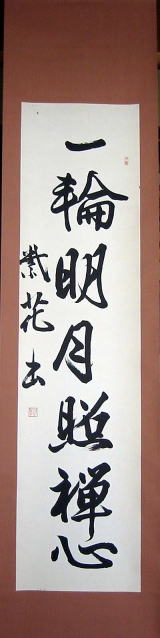 一輪明月照禅心
紫花出